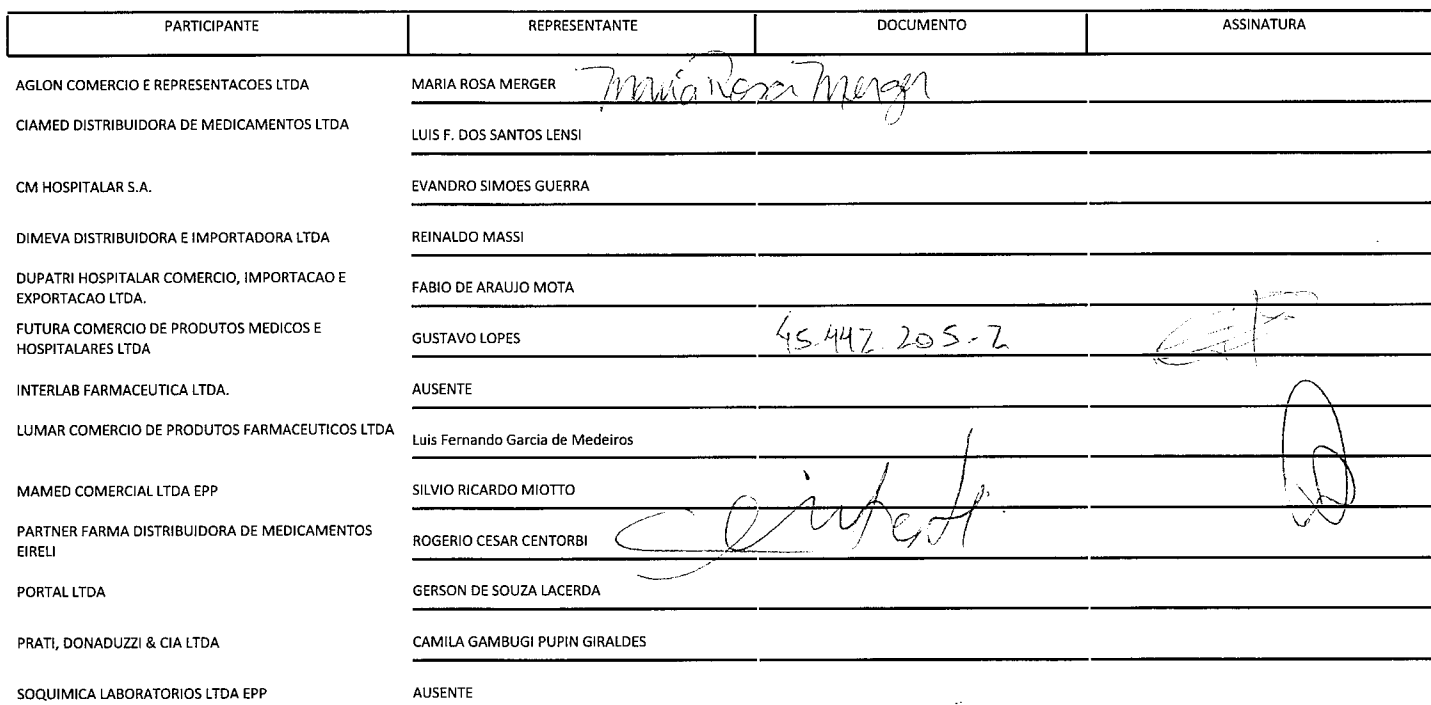 PARTICIPANTE REPRESENTANTE DOCUMENTO ASSINATURA
AGLON COMERCIO E REPRESENTACOES LTDA MARIA ROSA MERGER Maria Rosa Merger
CIAMED DISTRIBUIDORA DE MEDICAMENTOS LTDA LUIS F. DOS SANTOS LENSI
CM HOSPITALAR S.A. EVANDRO SIMOES GUERRA
DIMEVA DISTRIBUIDORA E IMPORTADORA LTDA REINALDO MASSI
DUPATRI HOSPITALAR COMERCIO, IMPORTACAO E
EXPORTACAO LTDA. FABIO DE ARAUJO MOTA
FUTURA COMERCIO DE PRODUTOS MEDICOS E
HOSPITALARES LTDA GUSTAVO LOPES 45.442.205-2
INTERLAB FARMACEUTICA LTDA. AUSENTE
LUMAR COMERCIO DE PRODUTOS FARMACEUTICOS LTDA Luis Fernando Garcia de Medeiros
MAMED COMERCIAL LTDA EPP SILVIO RICARDO MIOTTO
PARTNER FARMA DISTRIBUIDORA DE MEDICAMENTOS
EIRELI ROGERIO CESAR CENTORBI
PORTAL LTDA GERSON DE SOUZA LACERDA
PRATI, DONADUZZI & CIA LTDA CAMILA GAMBUGI PUPIN GIRALDES
SOQUIMICA LABORATORIOS LTDA EPP AUSENTE